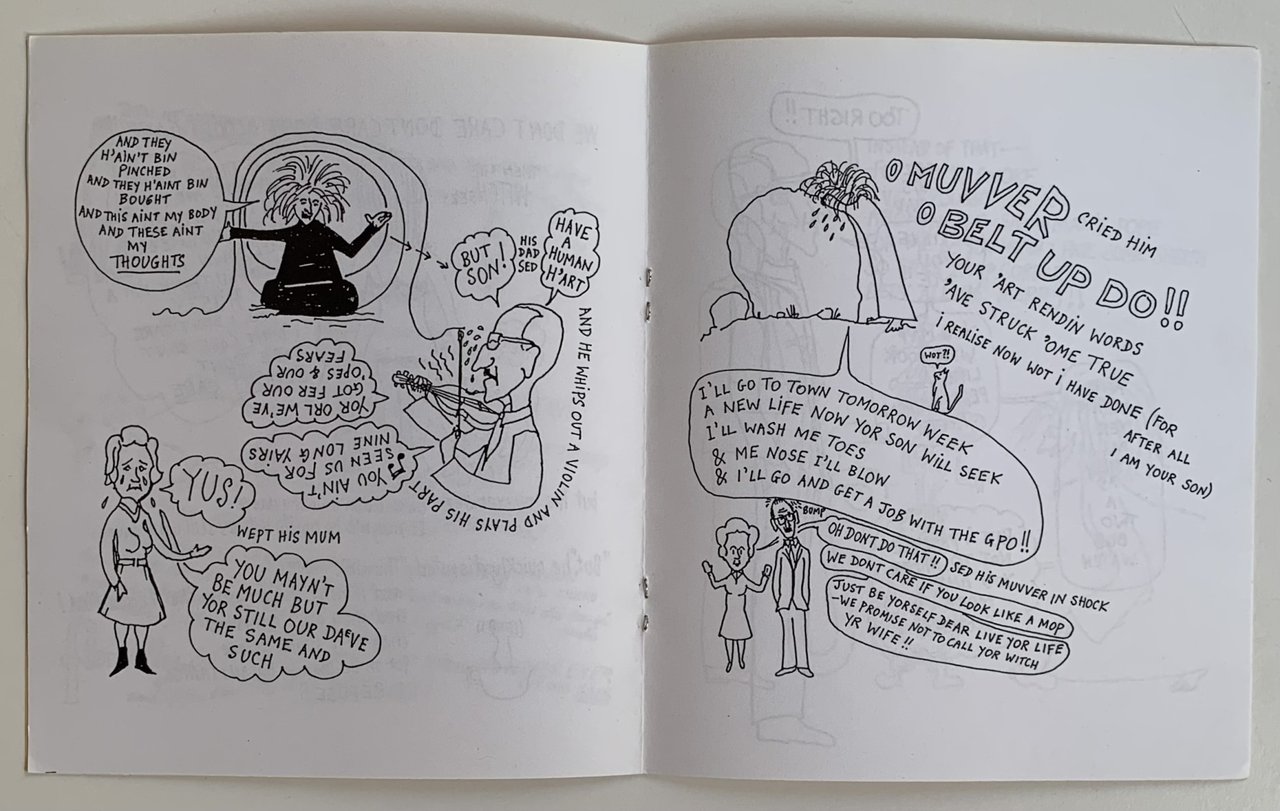 AND THEY
H'AIN'T BIN
PINCHED
AND THEY H'AINT BIN
BOUGHT
AND THIS AINT MY BODY
AND THESE AINT
MY
THOUGHTS
BUT
SON!
HIS
DAD
SED
HAVE
A
HUMAN
H'ART
AND HE WHIPS OUT A VIOLIN AND PLAYS HIS PART
YOU AIN'T
SEEN US FOR
NINE LONG YAIRS
YOR ORL WE'VE
GOT FER OUR
'OPES & OUR
FEARS
YUS!
WEPT HIS MUM
YOU MAYN'T
BE MUCH BUT
YOR STILL OUR DAEVE
THE SAME AND
SUCH
O MUVVER CRIED HIM
O BELT UP DO!!
YOUR 'ART RENDIN WORDS
'AVE STRUCK 'OME TRUE
I REALISE NOW WOT I HAVE DONE (FOR
AFTER ALL
I AM YOUR SON)
WOT?!
I'LL GO TO TOWN TOMORROW WEEK
A NEW LIFE NOW YOR SON WILL SEEK
I'LL WASH ME TOES
& ME NOSE I'LL BLOW
& I'LL GO AND GET A JOB WITH THE GPO!!
BOMP
OH DONT DO THAT!! SED HIS MUVVER IN SHOCK
WE DONT CARE IF YOU LOOK LIKE A MOP
JUST BE YORSELF DEAR LIVE YOR LIFE
-WE PROMISE NOT TO CALL YOR WITCH
YR WIFE!!
TOO RIGHT!!
WE DON'T CARE DON'T CARE